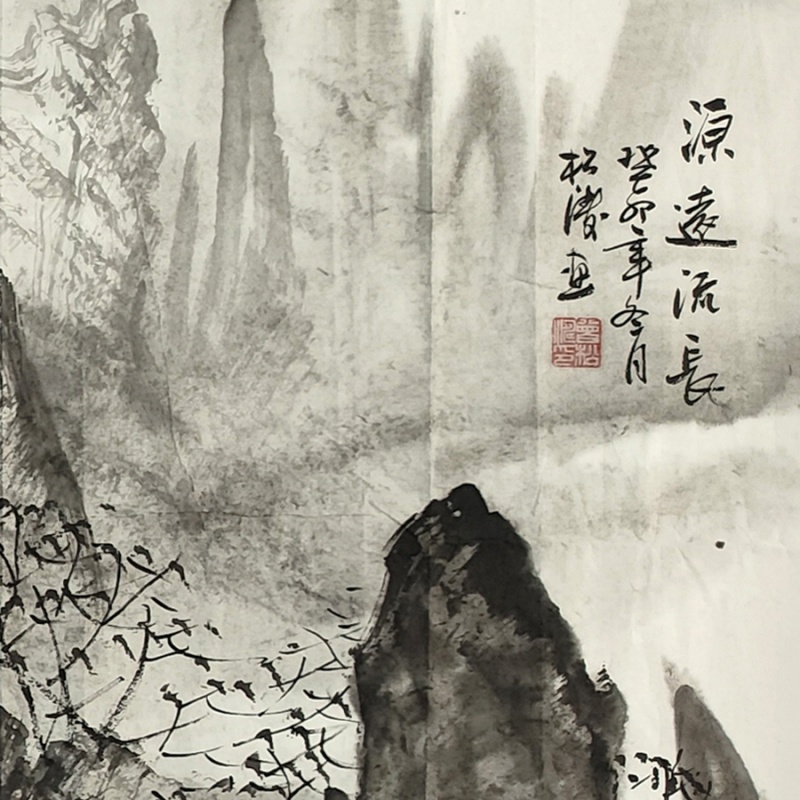 源遠流長
癸卯年冬月
松濤畫